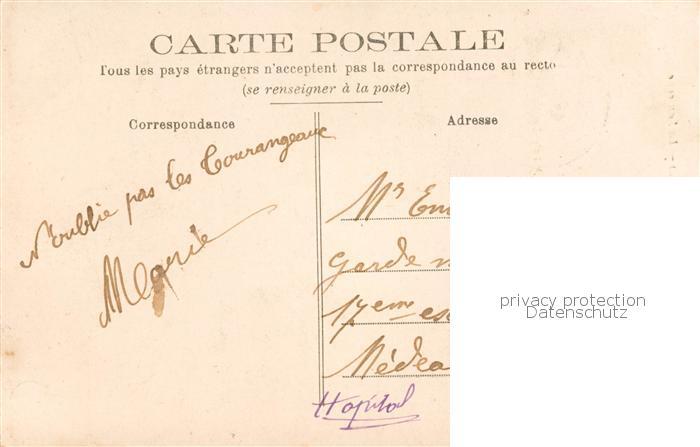 CARTE POSTALE
Tous les pays étrangers n'acceptent pas la correspondance au recto
(se renseigner à la poste)
Correspondance
N'oublie pas les Tourangeaux
Adresse
Mr Em
Garde
17eme es
Médea
Hopital
privacy protection
Datenschutz